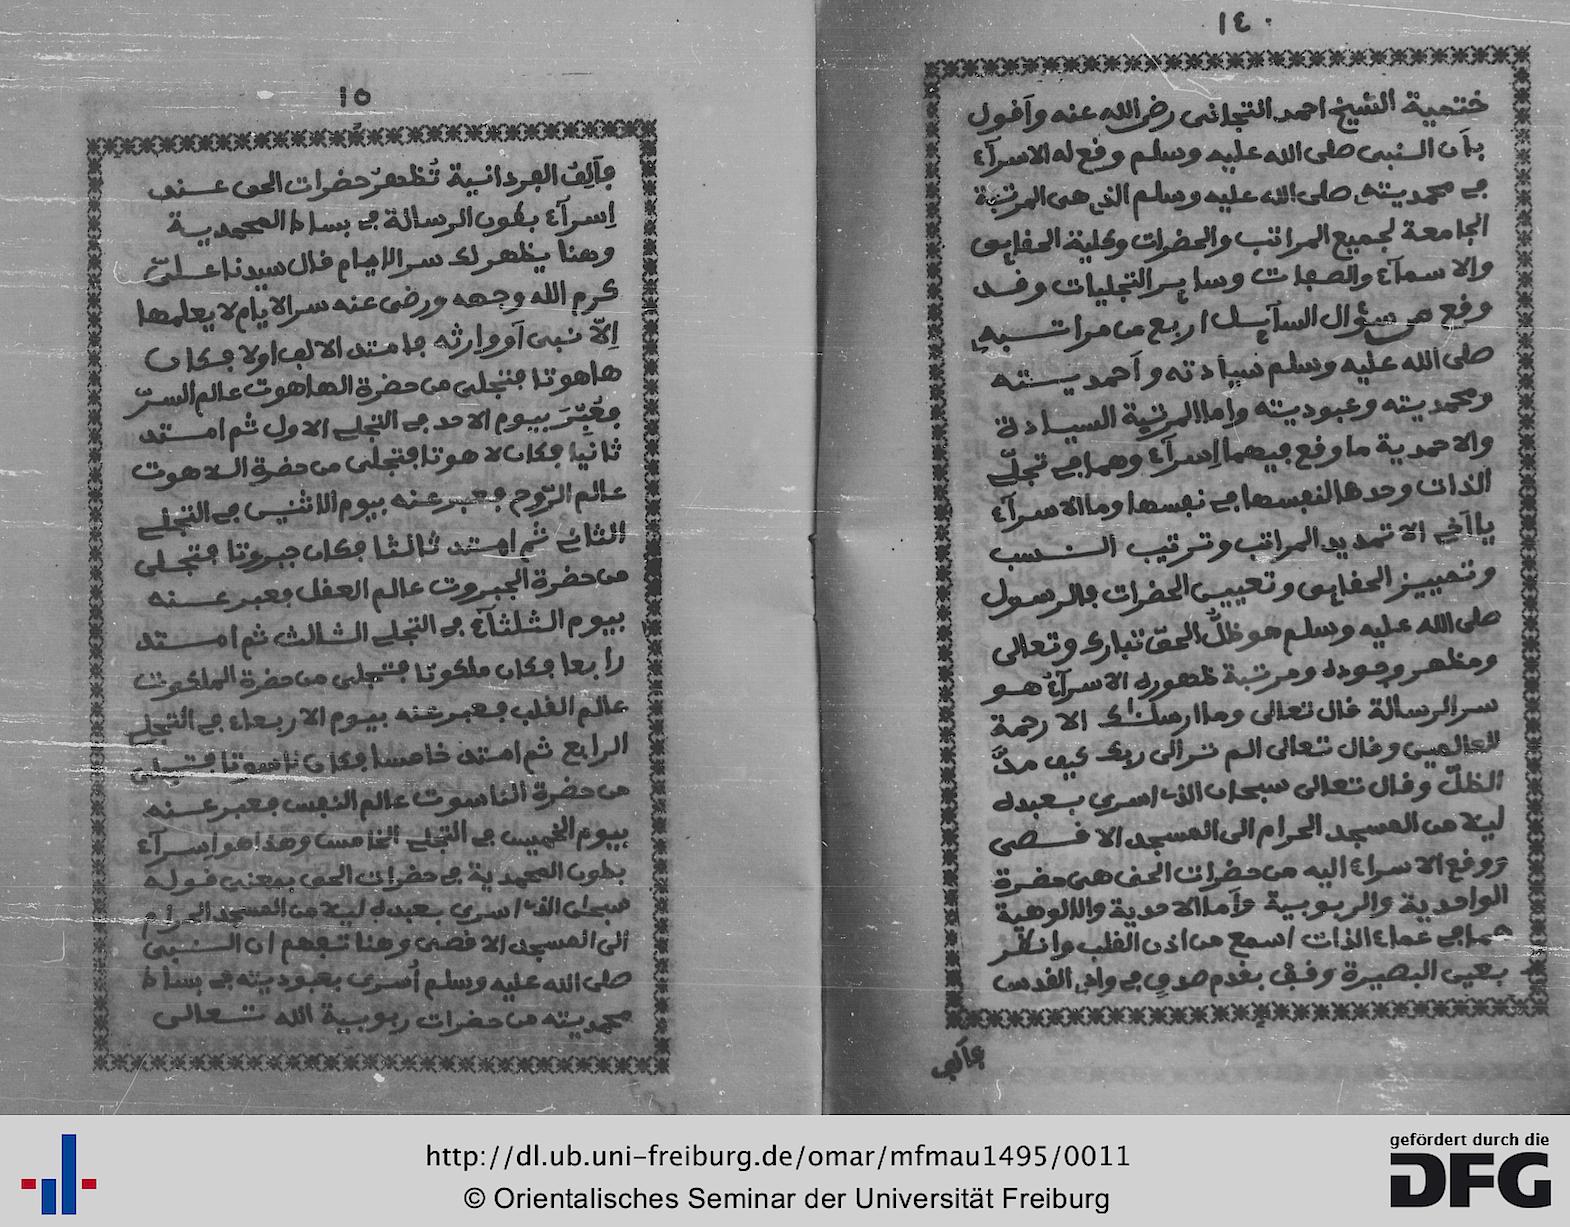 ١٤٠
ختمية الشيخ احمد التجاني رضى الله عنه وأقول
بأن النبى صلى الله عليه وسلم وقع له الاسرآء
في محمديته صلى الله عليه وسلم الذي هى المرتبة
الجامعة لجميع المراتب والحضرات وكلية الحقايق
والاسمآء والصفات وساير التجليات وقد
وقع من سؤال السآيل اربع من مراتبه
صلى الله عليه وسلم سيادته وأحمديته
ومحمديته وعبوديته واما المرتبة السيادة
والاحمدية ما وقع فيهما إسرآء وهما في تجلّي
الذات وحدها لنفسها في نفسها وما الاسرآء
يا أخي الا تمديد المراتب وترتيب النسب
وتمييز الحقايق وتعيين الحضرات فالرسول
صلى الله عليه وسلم هو ظلّ الحقّ تبارك وتعالى
ومظهر وجوده ومرتبة ظهوره الاسرآء هو
سر الرسالة قال تعالى وما ارسلناك الا رحمة
للعالمين وقال تعالى الم تر الى ربك كيف مدَّ
الظلّ وقال تعالى سبحان الذي اسرى بعبده
ليلا من المسجد الحرام الى المسجد الاقصى
ووقع الاسراء اليه من حضرات الحق هى حضرة
الواحدية والربوبية وأما الاحدية والالوهية
هما في عماء الذات اسمع من اذن القلب وانظر
بعين البصيرة وقف بقدم صدق في وادي القدس
فألف
١٥
فألف الفردانية تُظهر حضرات الحق عند
إسرآء بطون الرسالة في بساط المحمدية
وهنا يظهر لك سر الايام قال سيدنا علىّ
كرم الله وجهه ورضى عنه سر الايام لا يعلمها
إلّا نبى أو وارثه فامتد الالف اولا فكان
هاهوتا فتجلى من حضرة الهاهوت عالم السرّ
فعُبِّرَ بيوم الاحد في التجلي الاول ثم امتد
ثانيا فكان لاهوتا فتجلى من حضرة اللاهوت
عالم الرّوح فعبر عنه بيوم الاثنين في التجلي
الثاني ثم امتد ثالثا فكان جبروتا فتجلى
من حضرة الجبروت عالم العقل فعبر عنه
بيوم الثلثآء في التجلي الثالث ثم امتد
رابعا فكان ملكوتا فتجلى من حضرة الملكوت
عالم القلب فعبر عنه بيوم الاربعاء في التجلي
الرابع ثم امتد خامسا فكان ناسوتا فتجلى
من حضرة الناسوت عالم النفس فعبر عنه
بيوم الخميس في التجلي الخامس وهذا هو إسرآء
بطون المحمدية في حضرات الحق بمعنى قوله
سبحان الذي اسرى بعبده ليلا من المسجد الحرام
الى المسجد الاقصى وهنا تفهم ان النبى
صلى الله عليه وسلم أسرى بعبوديته في بساط
محمديته من حضرات ربوبية الله تعالى
http://dl.ub.uni-freiburg.de/omar/mfmau1495/0011
© Orientalisches Seminar der Universität Freiburg
gefördert durch die
DFG